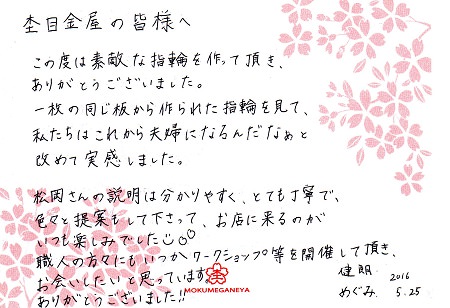 杢目金屋の皆様へ
この度は素敵な指輪を作って頂き、
ありがとうございました。
一枚の同じ板から作られた指輪を見て、
私たちはこれから夫婦になるんだなぁと
改めて実感しました。
松岡さんの説明は分かりやすく、とても丁寧で、
色々と提案もして下さって、お店に来るのが
いつも楽しみでした
職人の方々にもいつかワークショップ等を開催して頂き、
お会いしたいと思っています。
ありがとうございました!!
MOKUMEGANEYA
健朗
めぐみ
2016
5.25